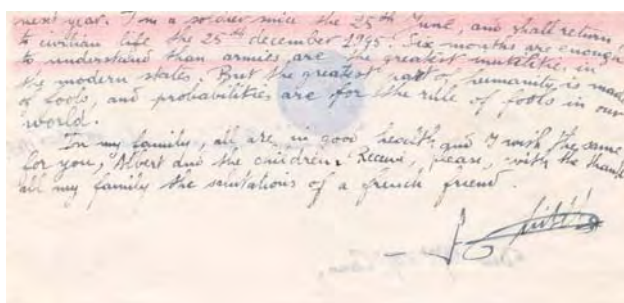 next year. I'm a soldier since the 25th June, and shall return
to civilian life the 25th december 1995. Six months are enough
to understand than armies are the greatest inutilities in
the modern states. But the greatest part of humanity is made
of fools, and probabilities are for the rule of fools in our
world.
In my family, all are in good health and I wish the same
for you, Albert and the children. Receive, please, with the thanks
all my family the salutations of a french friend.